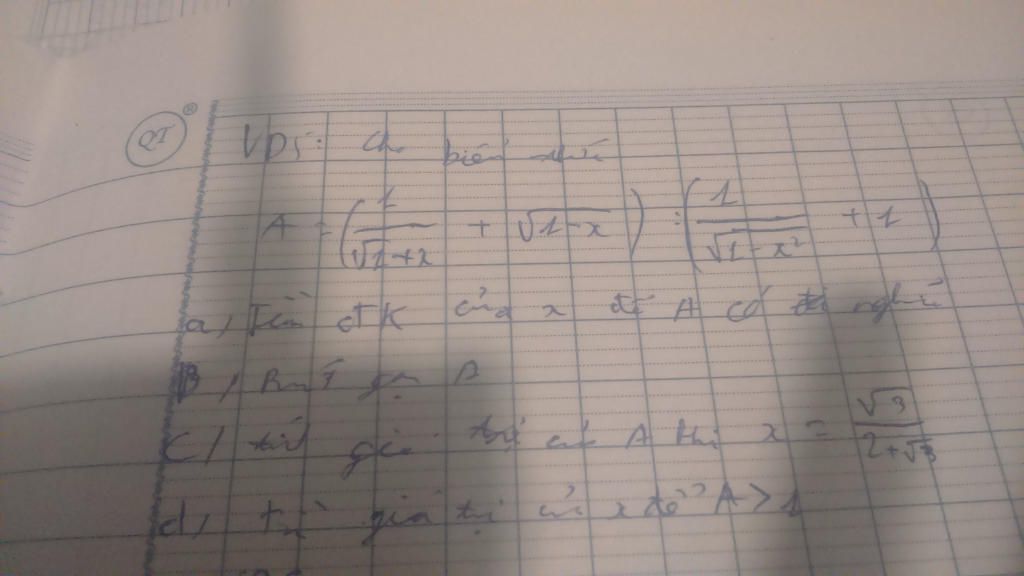 QT ®
VD5: Cho biểu thức
A = (1/√1+x + √1-x) : (1/√1-x² + 1)
a, Tìm đk của x để A có nghĩa
B, Rút gọn A
C, tính giá trị của A khi x = √3/2+√3
d, tìm giá trị của x để A > 1